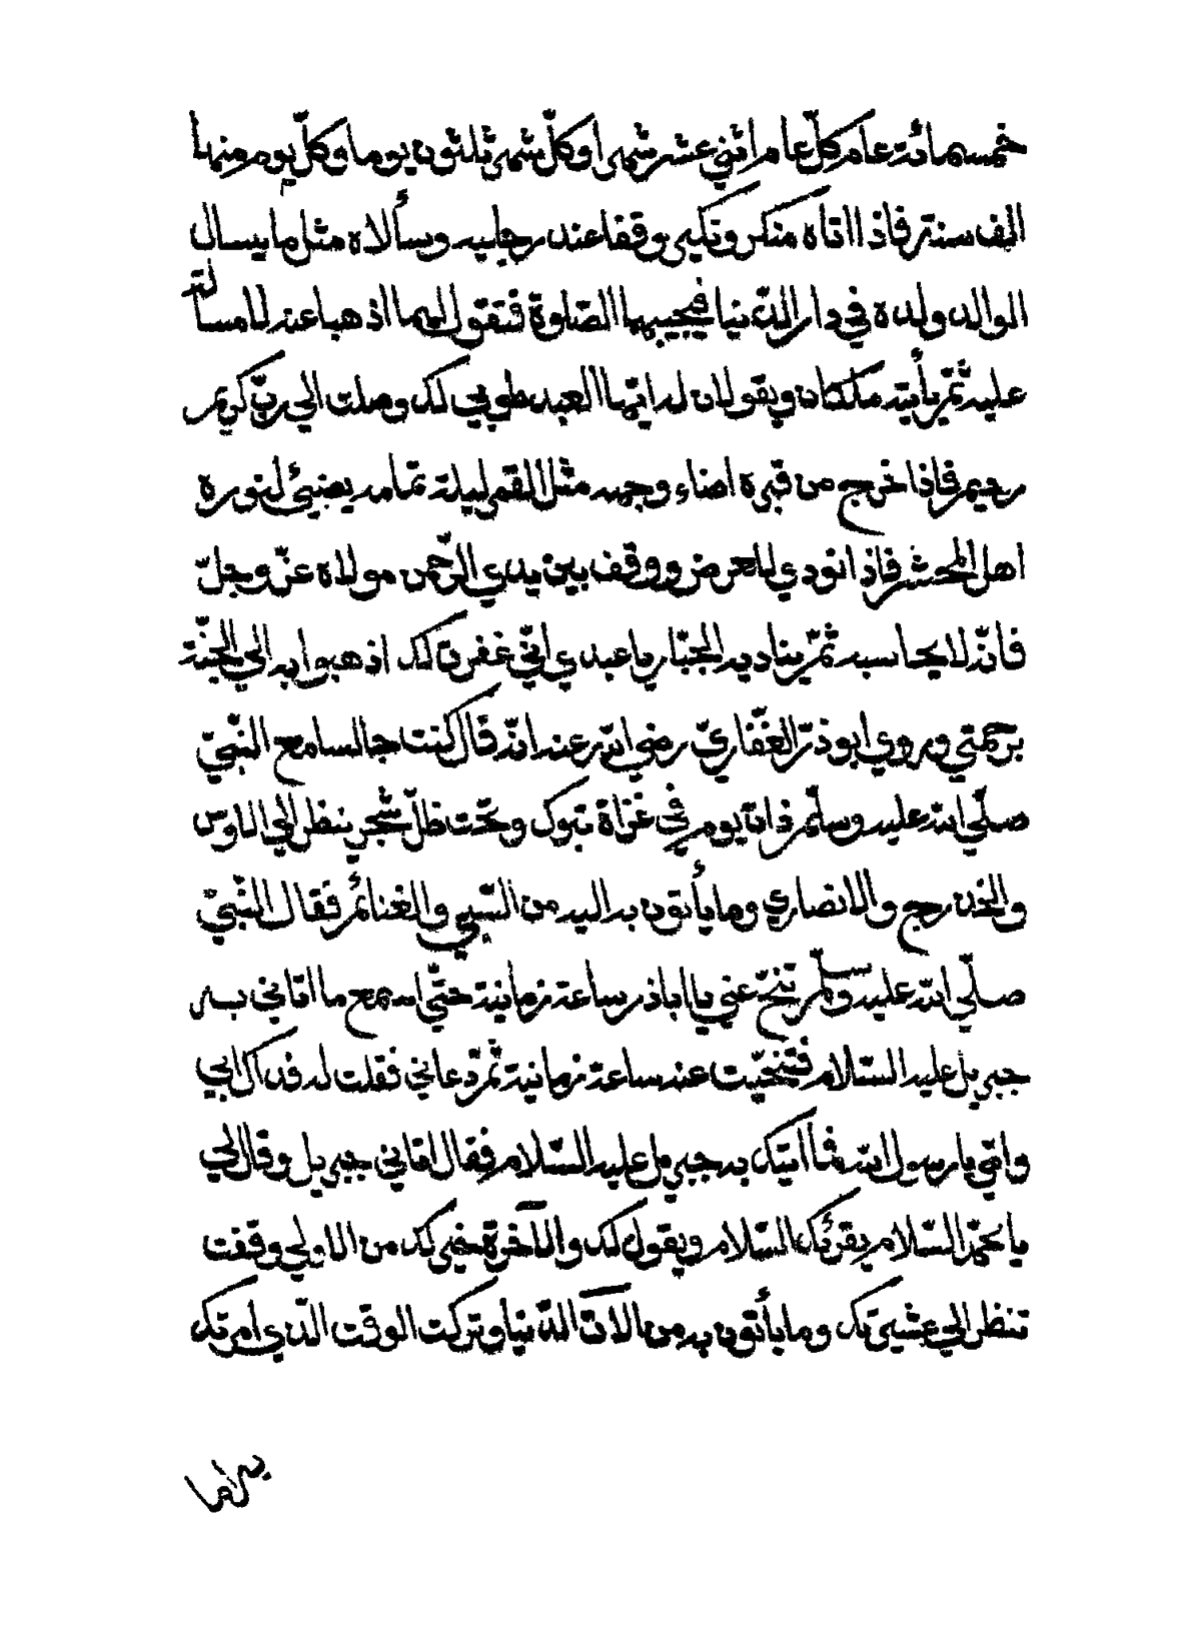 خمسمائة عام كلّ عام اثني عشر شهرا وكلّ شهر ثلثون يوما وكلّ يوم منها
الف سنة فاذا اتاه منكر ونكير وقفا عند رجليه وسألاه مثل ما يسال
الوالد ولده في دار الدّنيا فيجيبهما الصّلوة فتقول لهما اذهبا عنه لا مسألة
عليه ثمّ يأتيه ملكان ويقولان له ايّها العبد طوبي لك وصلت الي ربّ كريم
رحيم فاذا خرج من قبره اضاء وجهه مثل القمر ليلة تمامه يضيئ لنوره
اهل المحشر فاذا نودي للعرض ووقف بين يدي الرّحمن مولاه عزّ وجلّ
فانّه لا يحاسبه ثمّ يناديه الجبّار يا عبدي انّي غفرت لك اذهبوا به الي الجنّة
برحمتي وروي ابو ذرّ الغفّاريّ رضي الله عنه انّه قال كنت جالسا مع النّبيّ
صلّي الله عليه وسلّم ذات يوم في غزاة تبوك وتحت ظلّ شجر ينظر الي الاوس
والخزرج والانصاري وما يأتون به اليه من السّبي والغنائم فقال النّبيّ
صلّي الله عليه وسلّم تنحّ عني يا اباذر ساعة زمانية حتّي اسمع ما اتاني به
جبريل عليه السّلام فتنحّيت عنه ساعة زمانية ثمّ دعاني فقلت له فداك ابي
وامّي يا رسول الله فما اتيك به جبريل عليه السّلام فقال اتاني جبريل وقال لي
يا محمّد السّلام يقرئك السّلام ويقول لك والآخرة خير لك من الاولي وقفت
تنظر الي عشيرتك وما يأتون به من الآت الدّنيا وتركت الوقت الّذي أمرتك